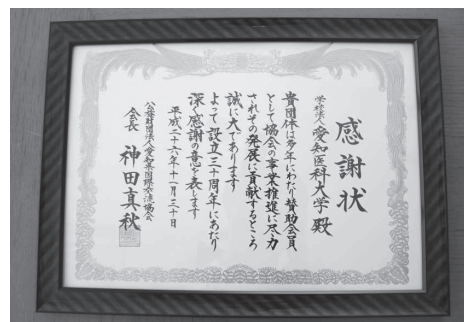 感謝状
学校法人 愛知医科大学 殿
貴団体は多年にわたり賛助会員
として協会の事業推進に尽力
されその発展に貢献するところ
誠に大であります
よって設立三十周年にあたり
深く感謝の意を表します
平成二十六年十一月三十日
公益財団法人愛知県国際交流協会
会長 神田真秋